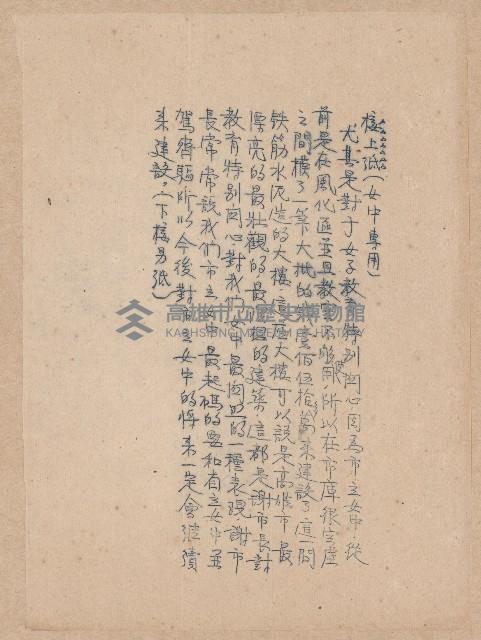 接上紙(女中專用)
尤其是對于女子教育特別関心・因為市立女中・從
前是在風化區並且教室不够用・所以在市庫很空虛
之間撥了一筆大批的 壹佰伍拾萬來建設了這一間
铁筋水泥造的大樓・這座大樓可以說是高雄市最
漂亮的最壯觀的最 想的建築・這都是謝市長對
教育特別関心・對我們女中最関照的一種表現謝市
長常常説我們市立女中最起碼的要和省立女中並
駕齊驅所以今後對市立女中的將來一定會継續
來建設。(下接另紙)
高雄市立歷史博物館
KAOHSIUNG MUSEUM OF HISTORY